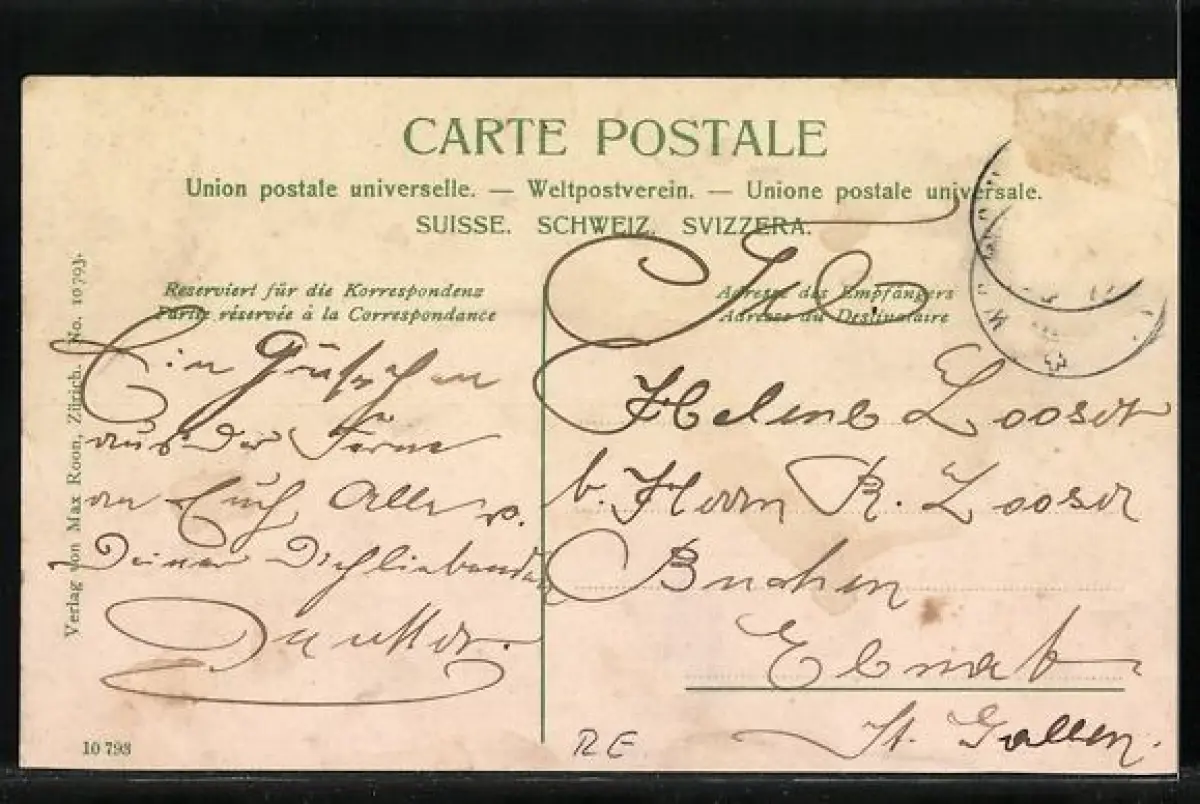 CARTE POSTALE
Union postale universelle. — Weltpostverein. — Unione postale universale.
SUISSE. SCHWEIZ. SVIZZERA.
Reserviert für die Korrespondenz
Partie réservée à la Correspondance
Adresse des Empfängers
Adresse du Destinataire
Verlag von Max Roon, Zürich. No. 10793.
Ein Grüßchen
aus der Ferne
an Euch Alle v.
Deiner Dichliebenden
Mutter.
Helene Looser
b. Herrn R. Looser
Buchen
Ebnat
St. Gallen.
10 793
RE